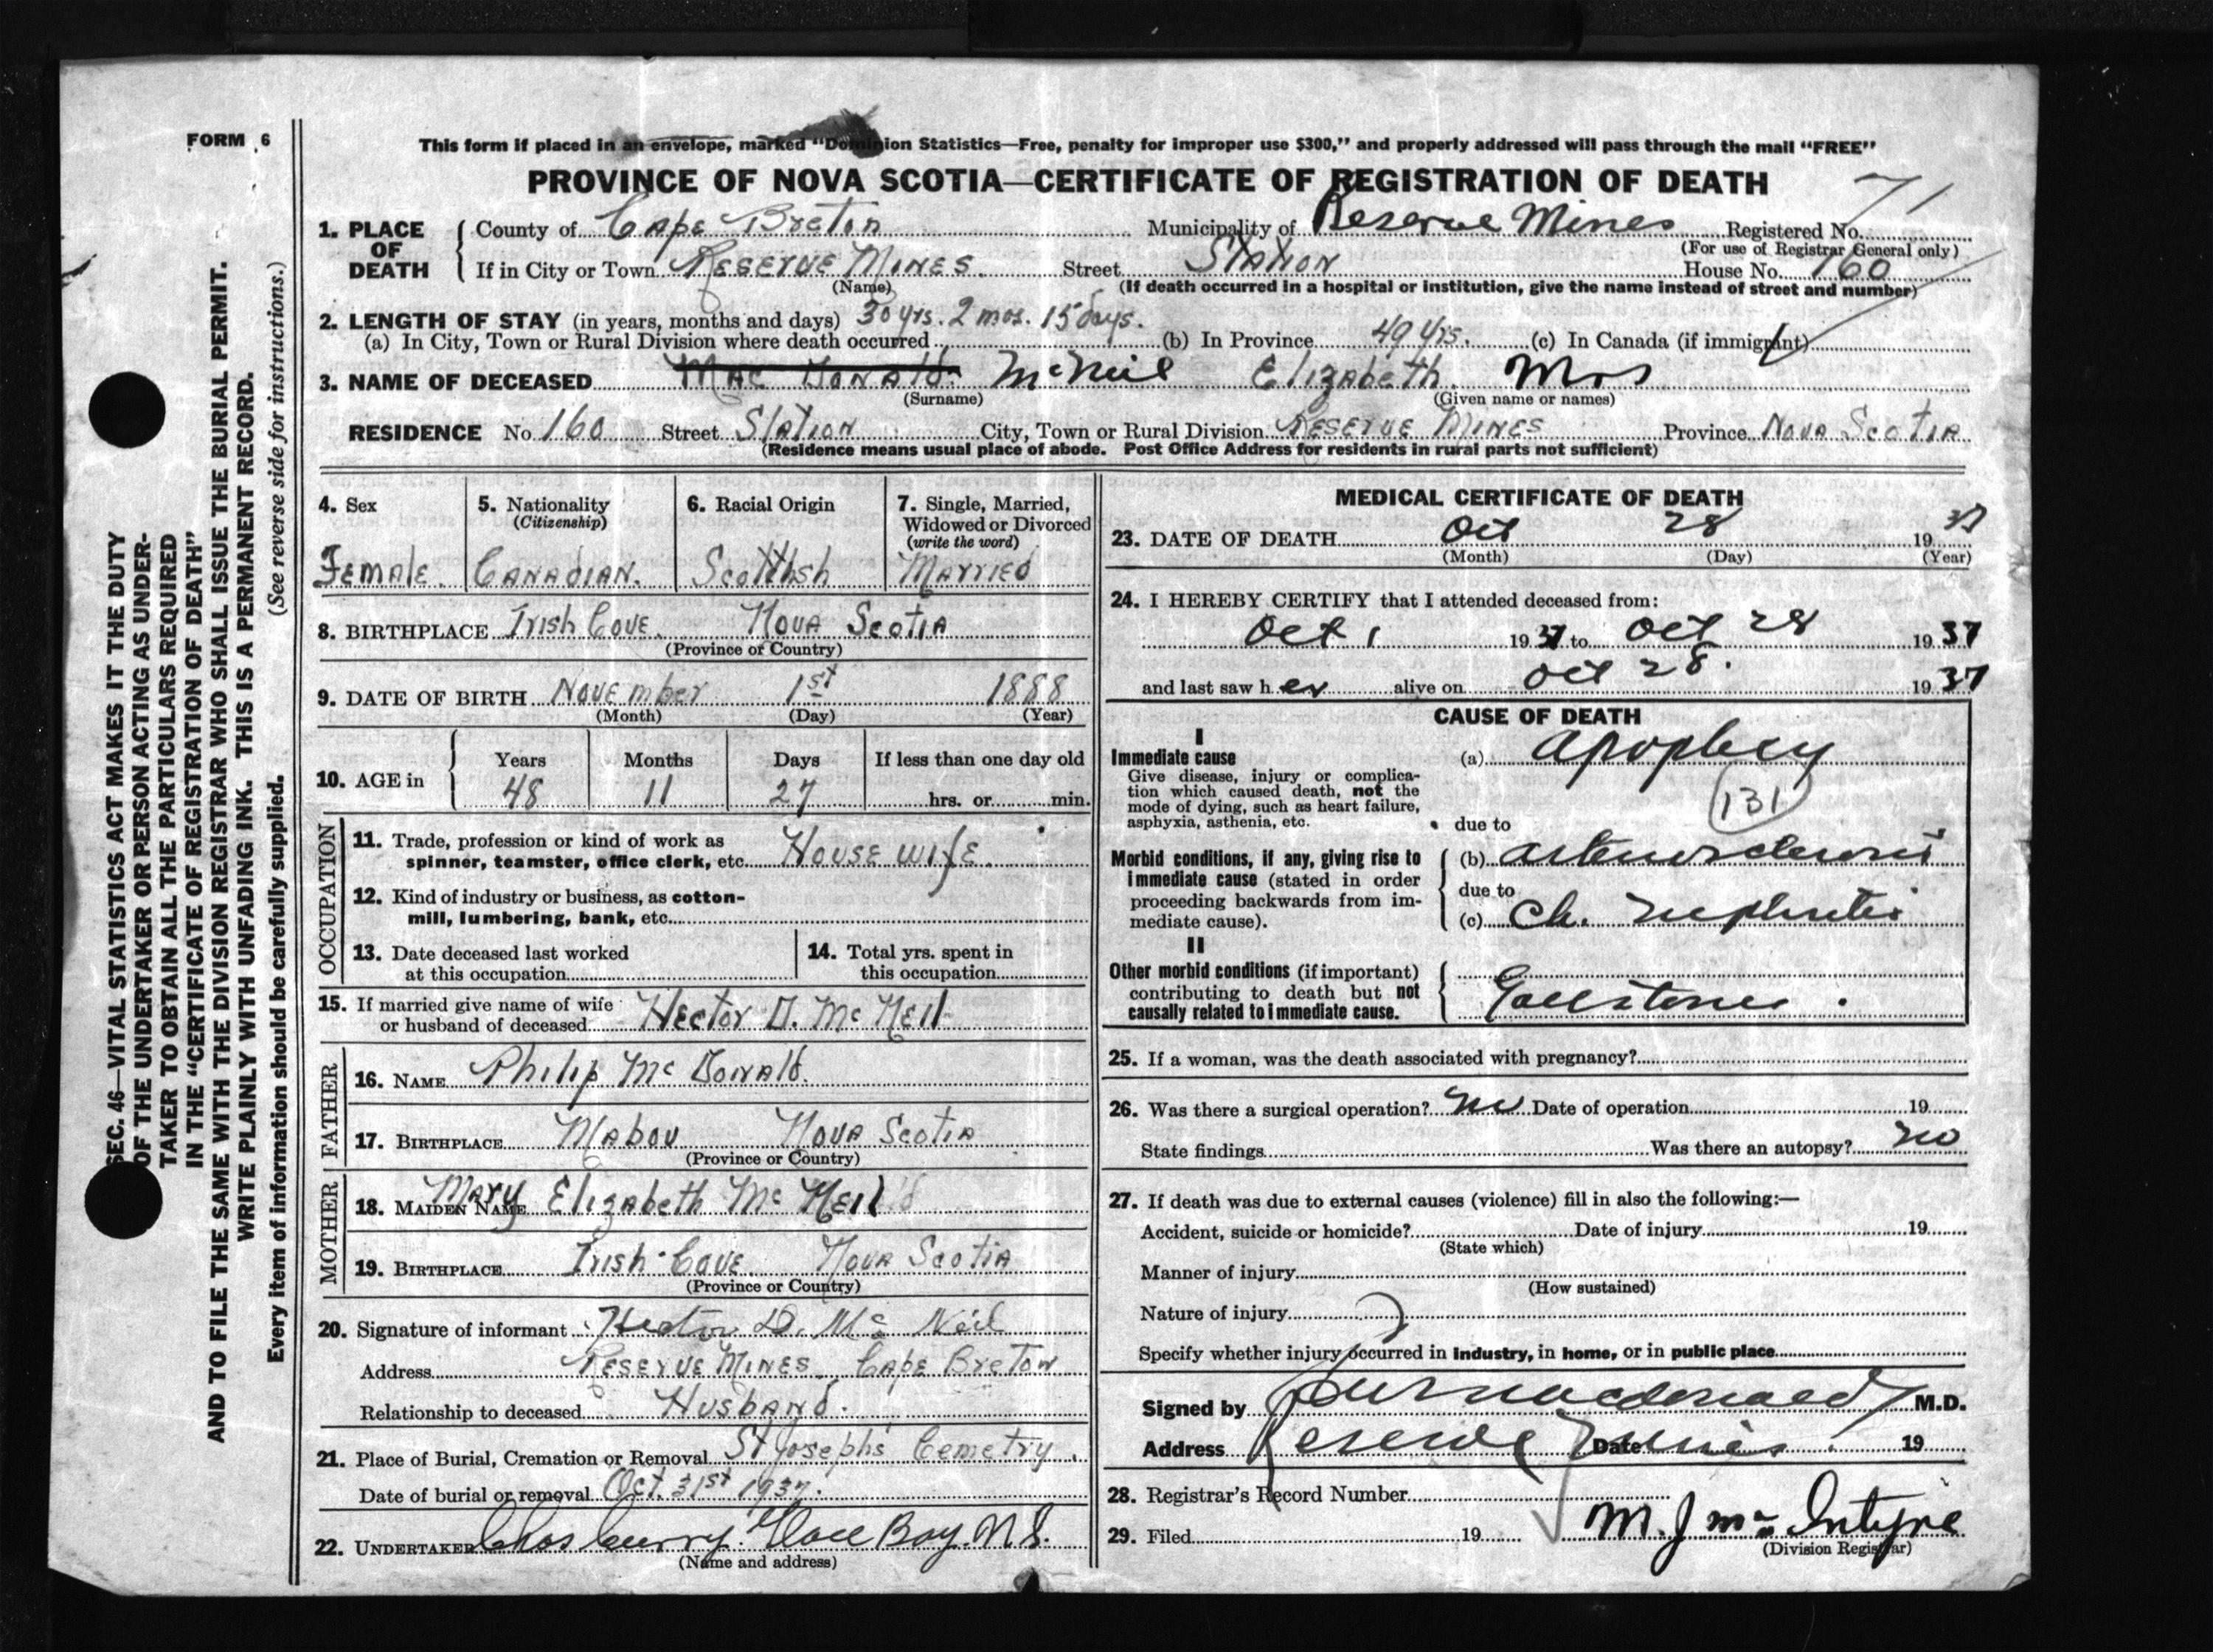 FORM 6
SEC. 46—VITAL STATISTICS ACT MAKES IT THE DUTY
OF THE UNDERTAKER OR PERSON ACTING AS UNDER-
TAKER TO OBTAIN ALL THE PARTICULARS REQUIRED
IN THE "CERTIFICATE OF REGISTRATION OF DEATH"
AND TO FILE THE SAME WITH THE DIVISION REGISTRAR WHO SHALL ISSUE THE BURIAL PERMIT.
WRITE PLAINLY WITH UNFADING INK. THIS IS A PERMANENT RECORD.
Every item of information should be carefully supplied. (See reverse side for instructions.)
This form if placed in an envelope, marked "Dominion Statistics—Free, penalty for improper use $300," and properly addressed will pass through the mail "FREE"
PROVINCE OF NOVA SCOTIA—CERTIFICATE OF REGISTRATION OF DEATH
71
1. PLACE OF DEATH
County of Cape Breton Municipality of Reserve Mines Registered No.
(For use of Registrar General only)
If in City or Town Reserve Mines Street Station House No. 160
(Name) (If death occurred in a hospital or institution, give the name instead of street and number)
2. LENGTH OF STAY (in years, months and days) 30 yrs. 2 mos. 15 days.
(a) In City, Town or Rural Division where death occurred (b) In Province 49 yrs. (c) In Canada (if immigrant)
3. NAME OF DECEASED Mac Donald McNeil Elizabeth Mrs
(Surname) (Given name or names)
RESIDENCE No 160 Street Station City, Town or Rural Division Reserve Mines Province Nova Scotia
(Residence means usual place of abode. Post Office Address for residents in rural parts not sufficient)
4. Sex
Female
5. Nationality
(Citizenship)
Canadian.
6. Racial Origin
Scottish
7. Single, Married,
Widowed or Divorced
(write the word)
Married
8. BIRTHPLACE Irish Cove. Nova Scotia
(Province or Country)
9. DATE OF BIRTH November 1st 1888
(Month) (Day) (Year)
10. AGE in
Years Months Days If less than one day old
48 11 27 hrs. or min.
OCCUPATION
11. Trade, profession or kind of work as
spinner, teamster, office clerk, etc. House wife.
12. Kind of industry or business, as cotton-
mill, lumbering, bank, etc.
13. Date deceased last worked
at this occupation
14. Total yrs. spent in
this occupation
15. If married give name of wife
or husband of deceased Hector D. McNeil
FATHER
16. NAME Philip McDonald.
17. BIRTHPLACE Mabou Nova Scotia
(Province or Country)
MOTHER
18. MAIDEN NAME Mary Elizabeth McNeil
19. BIRTHPLACE Irish Cove Nova Scotia
(Province or Country)
20. Signature of informant Hector D. McNeil
Address Reserve Mines, Cape Breton
Relationship to deceased Husband.
21. Place of Burial, Cremation or Removal St Josephs Cemetry.
Date of burial or removal Oct. 31st 1937.
22. UNDERTAKER Chas Curry. Glace Bay. N.S.
(Name and address)
MEDICAL CERTIFICATE OF DEATH
23. DATE OF DEATH Oct 28 1937
(Month) (Day) (Year)
24. I HEREBY CERTIFY that I attended deceased from:
Oct 1 1937 to Oct 28 1937
and last saw her alive on Oct 28. 1937
CAUSE OF DEATH
I
Immediate cause
Give disease, injury or complica-
tion which caused death, not the
mode of dying, such as heart failure,
asphyxia, asthenia, etc.
(a) Apoplexy
131
due to
Morbid conditions, if any, giving rise to
immediate cause (stated in order
proceeding backwards from im-
mediate cause).
(b) Arteriosclerosis
due to
(c) Ch. Nephritis
II
Other morbid conditions (if important)
contributing to death but not
causally related to immediate cause.
Gallstones.
25. If a woman, was the death associated with pregnancy?
26. Was there a surgical operation? No Date of operation 19
State findings Was there an autopsy? No
27. If death was due to external causes (violence) fill in also the following:—
Accident, suicide or homicide? Date of injury 19
(State which)
Manner of injury
(How sustained)
Nature of injury
Specify whether injury occurred in industry, in home, or in public place
Signed by MacDonald M.D.
Address Reserve Mines. Date 19
28. Registrar's Record Number
29. Filed 19 M. J. McIntyre
(Division Registrar)